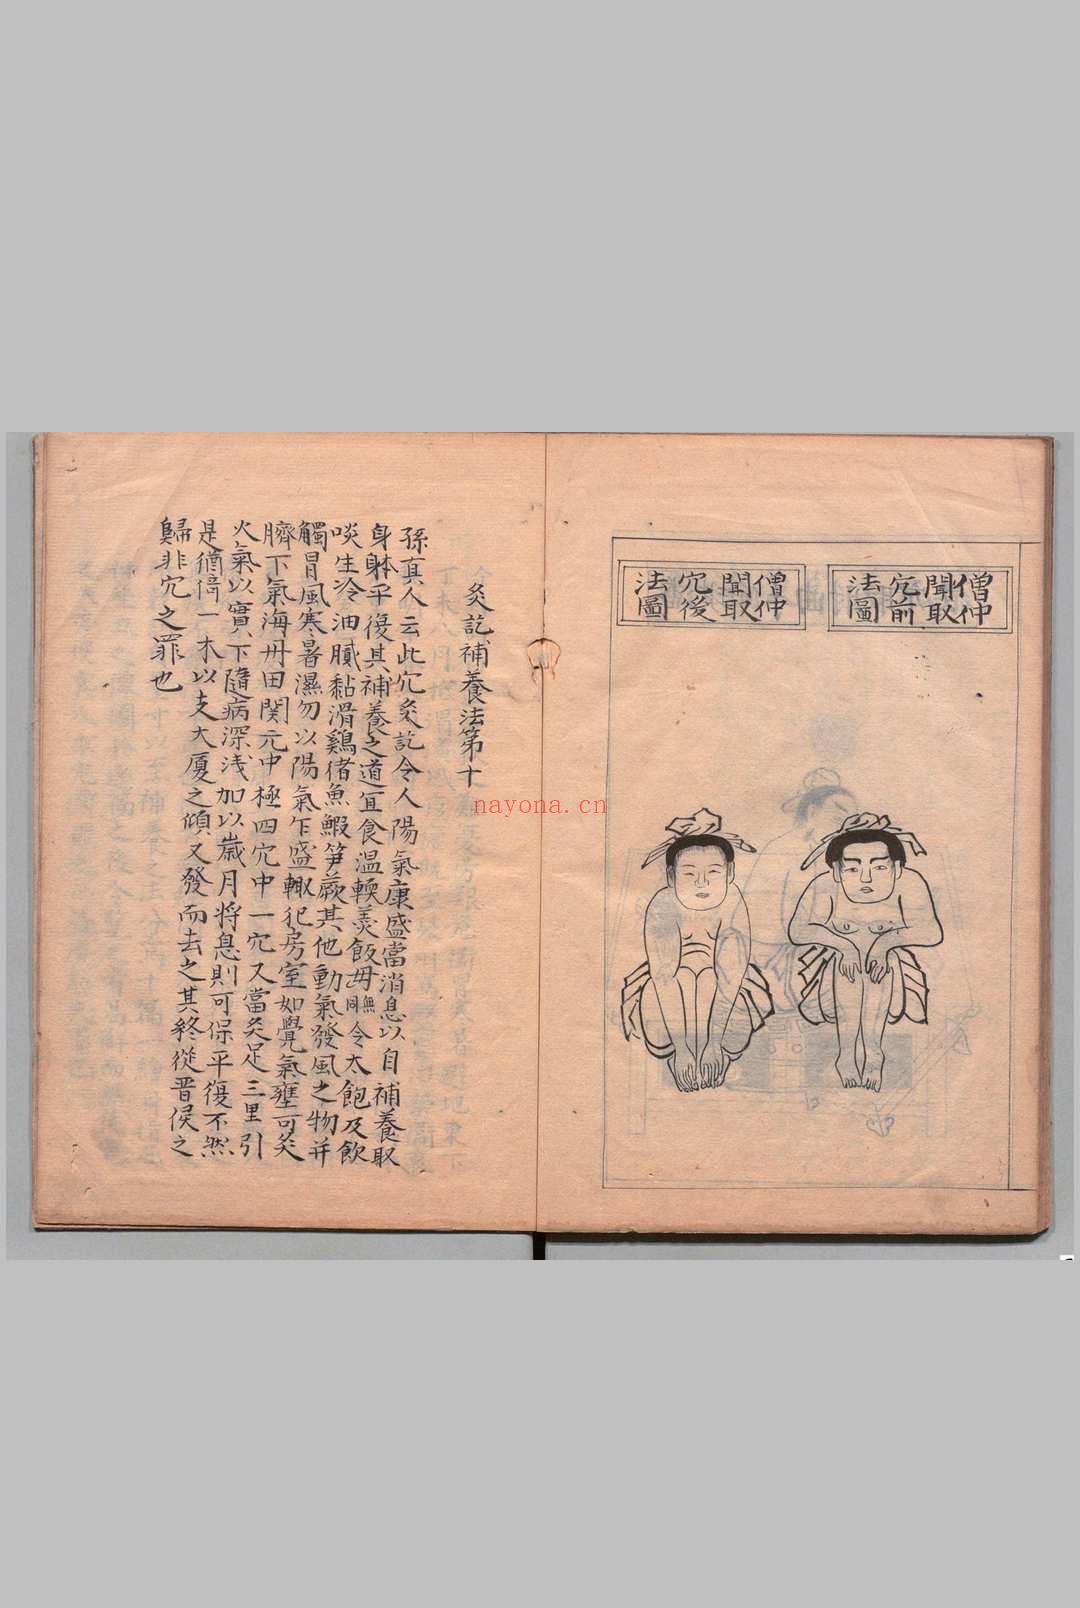 僧仲
聞取
穴前
法圖
僧仲
聞取
穴後
法圖
灸訖補養法第十
孫真人云此穴灸訖令人陽氣康盛當消息以自補養取
身躰平復其補養之道宜食温輭羮飯毋無同令太飽及飲
啖生冷油膩黏滑鷄猪魚鰕笋蕨其他動氣發風之物并
觸冒風寒暑濕勿以陽氣乍盛輙犯房室如覺氣壅可灸
臍下氣海丹田関元中極四穴中一穴又當灸足三里引
火氣以實下隨病深浅加以歲月將息則可保平復不然
是猶倚一木以支大厦之傾又發而去之其終從晋侯之
歸非穴之罪也
nayona.cn